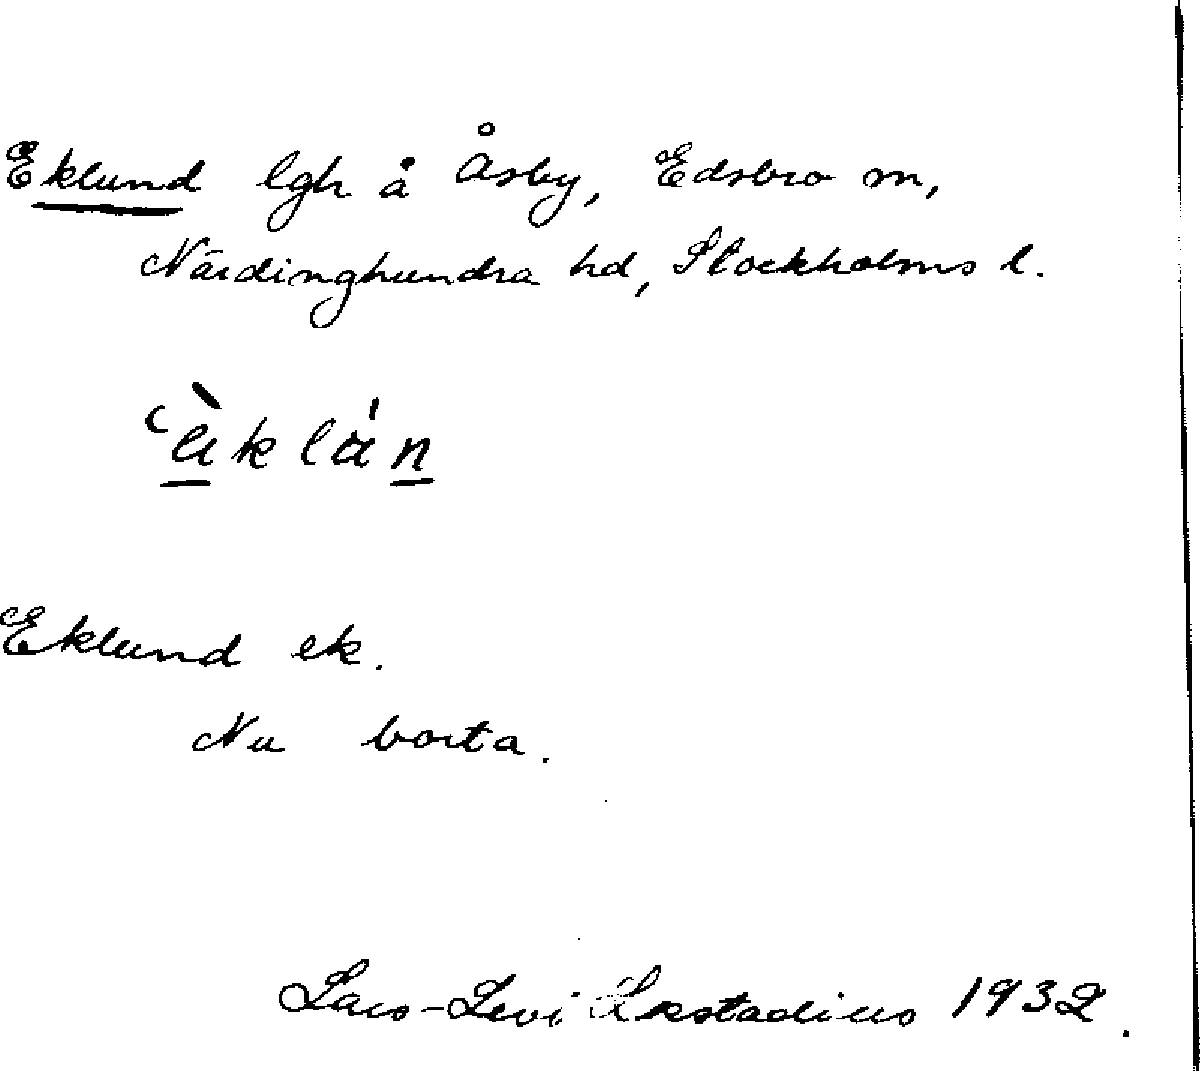 Eklund lgh å Åsby, Edsbro sn,
Närdinghundra hd, Stockholms l.
Eklund ek.
Nu borta.
Lars-Levi Læstadius 1932.